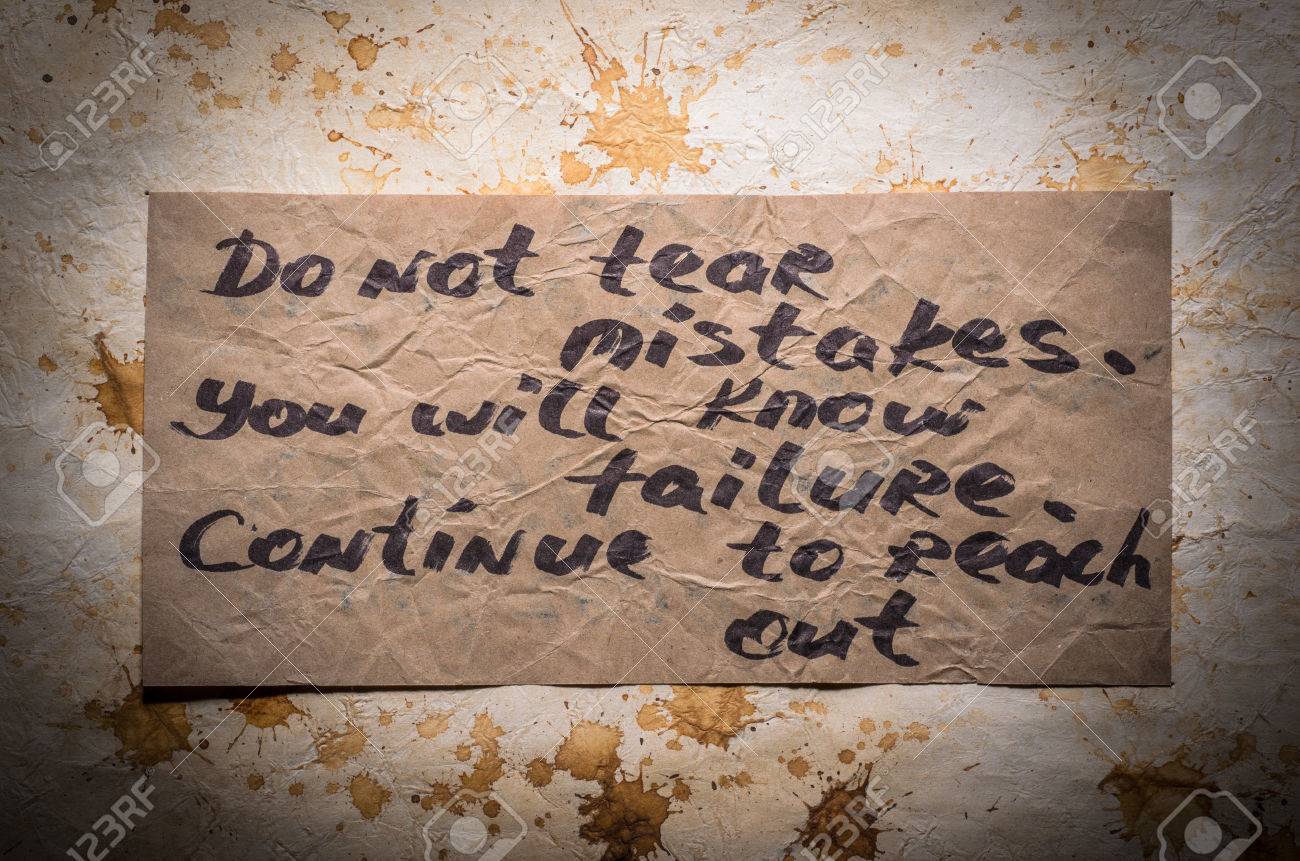 Do not tear
mistakes.
You will know
failure.
Continue to reach
out